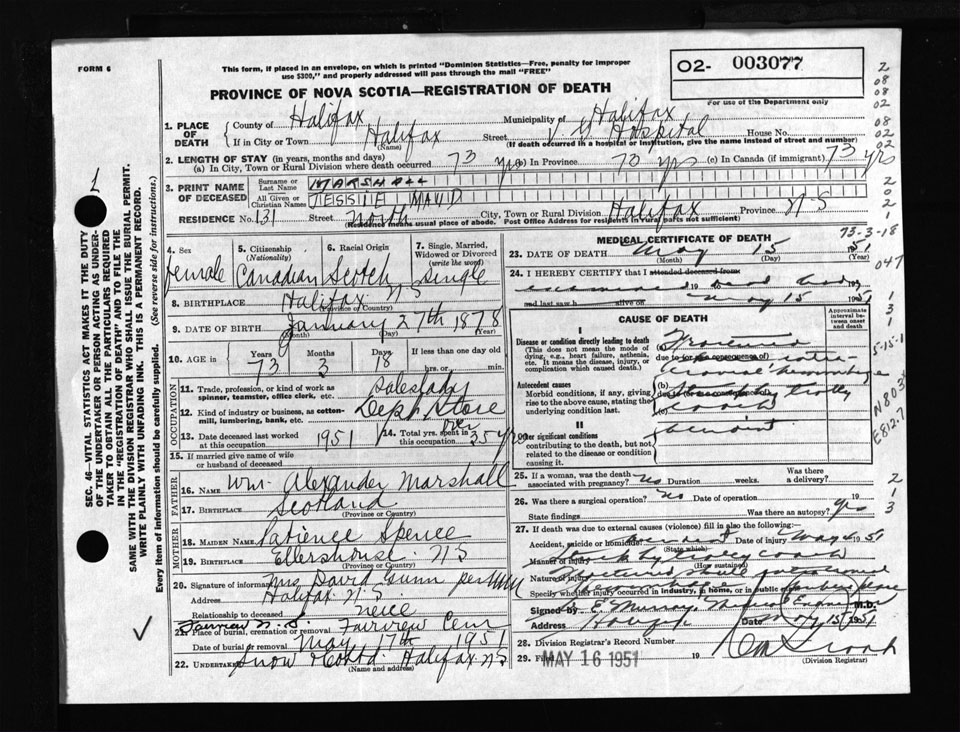 FORM 6
This form, if placed in an envelope, on which is printed "Dominion Statistics—Free, penalty for improper
use $300," and properly addressed will pass through the mail "FREE"
O2- 003077
For use of the Department only
PROVINCE OF NOVA SCOTIA—REGISTRATION OF DEATH
1. PLACE OF DEATH { County of Halifax Municipality of Halifax
If in City or Town Halifax (Name) Street V. G. Hospital House No.
(If death occurred in a hospital or institution, give the name instead of street and number)
2. LENGTH OF STAY (in years, months and days)
(a) In City, Town or Rural Division where death occurred 73 yrs (b) In Province 73 yrs (c) In Canada (if immigrant) 73 yrs
3. PRINT NAME OF DECEASED Surname or Last Name MARSHALL
All Given or Christian Names JESSIE MAUD
RESIDENCE No. 131 Street North City, Town or Rural Division Halifax Province N-S
(Residence means usual place of abode. Post Office Address for residents in rural parts not sufficient)
4. Sex female
5. Citizenship (Nationality) Canadian
6. Racial Origin Scotch
7. Single, Married, Widowed or Divorced (write the word) Single
8. BIRTHPLACE Halifax N-S (Province or Country)
9. DATE OF BIRTH January 27th 1878 (Month) (Day) (Year)
10. AGE in Years 73 Months 3 Days 18 If less than one day hrs. or min.
OCCUPATION
11. Trade, profession, or kind of work as spinner, teamster, office clerk, etc. Saleslady
12. Kind of industry or business, as cotton-mill, lumbering, bank, etc. Dept Store
13. Date deceased last worked at this occupation 1951
14. Total yrs. spent in this occupation over 35 yrs
15. If married give name of wife or husband of deceased
FATHER
16. NAME Wm. Alexander Marshall
17. BIRTHPLACE Scotland (Province or Country)
MOTHER
18. MAIDEN NAME Patience Spence
19. BIRTHPLACE Ellershouse N-S (Province or Country)
20. Signature of informant Mrs David Gunn per
Address Halifax N.S.
Relationship to deceased niece
21. Place of burial, cremation or removal Fairview Cem
Fairview N.S.
Date of burial or removal May 17th 1951
22. UNDERTAKER Snow & Co Ltd. Halifax N-S
(Name and address)
MEDICAL CERTIFICATE OF DEATH
23. DATE OF DEATH May 15 1951
(Month) (Day) (Year)
24. I HEREBY CERTIFY that I attended deceased from
examined 19 dead body 19
and last saw h alive on May 15 1951
CAUSE OF DEATH
Approximate interval between onset and death
I
Disease or condition directly leading to death
(This does not mean the mode of dying, e.g., heart failure, asthenia, etc. It means the disease, injury, or complication which caused death.)
due to (or as consequence of)
Antecedent causes
Morbid conditions, if any, giving rise to the above cause, stating the underlying condition last.
(b) Struck by trolly
(c) coach
II
Other significant conditions
contributing to the death, but not related to the disease or condition causing it.
accident
25. If a woman, was the death associated with pregnancy? no Duration weeks. Was there a delivery?
26. Was there a surgical operation? no Date of operation 19
State findings Was there an autopsy? yes
27. If death was due to external causes (violence) fill in also the following:
Accident, suicide or homicide? accident (State which) Date of injury May 1951
Manner of injury Struck by trolley coach (How sustained)
Nature of injury Fractured skull
Specify whether injury occurred in industry, in home, or in public place
Signed by E. Murray M.D.
Address Halifax Date May 15 1951
28. Division Registrar's Record Number
29. Filed MAY 16 1951 19
(Division Registrar)
SEC. 46—VITAL STATISTICS ACT MAKES IT THE DUTY
OF THE UNDERTAKER OR PERSON ACTING AS UNDER-
TAKER TO OBTAIN ALL THE PARTICULARS REQUIRED
IN THE "REGISTRATION OF DEATH" AND TO FILE THE
SAME WITH THE DIVISION REGISTRAR WHO SHALL ISSUE THE BURIAL PERMIT.
WRITE PLAINLY WITH UNFADING INK. THIS IS A PERMANENT RECORD.
Every item of information should be carefully supplied. (See reverse side for instructions.)
2
08
08
02
08
02
02
2
0
2
1
73-3-18
047
1
3
1
5-15-1
N803
E812.7
2
1
3